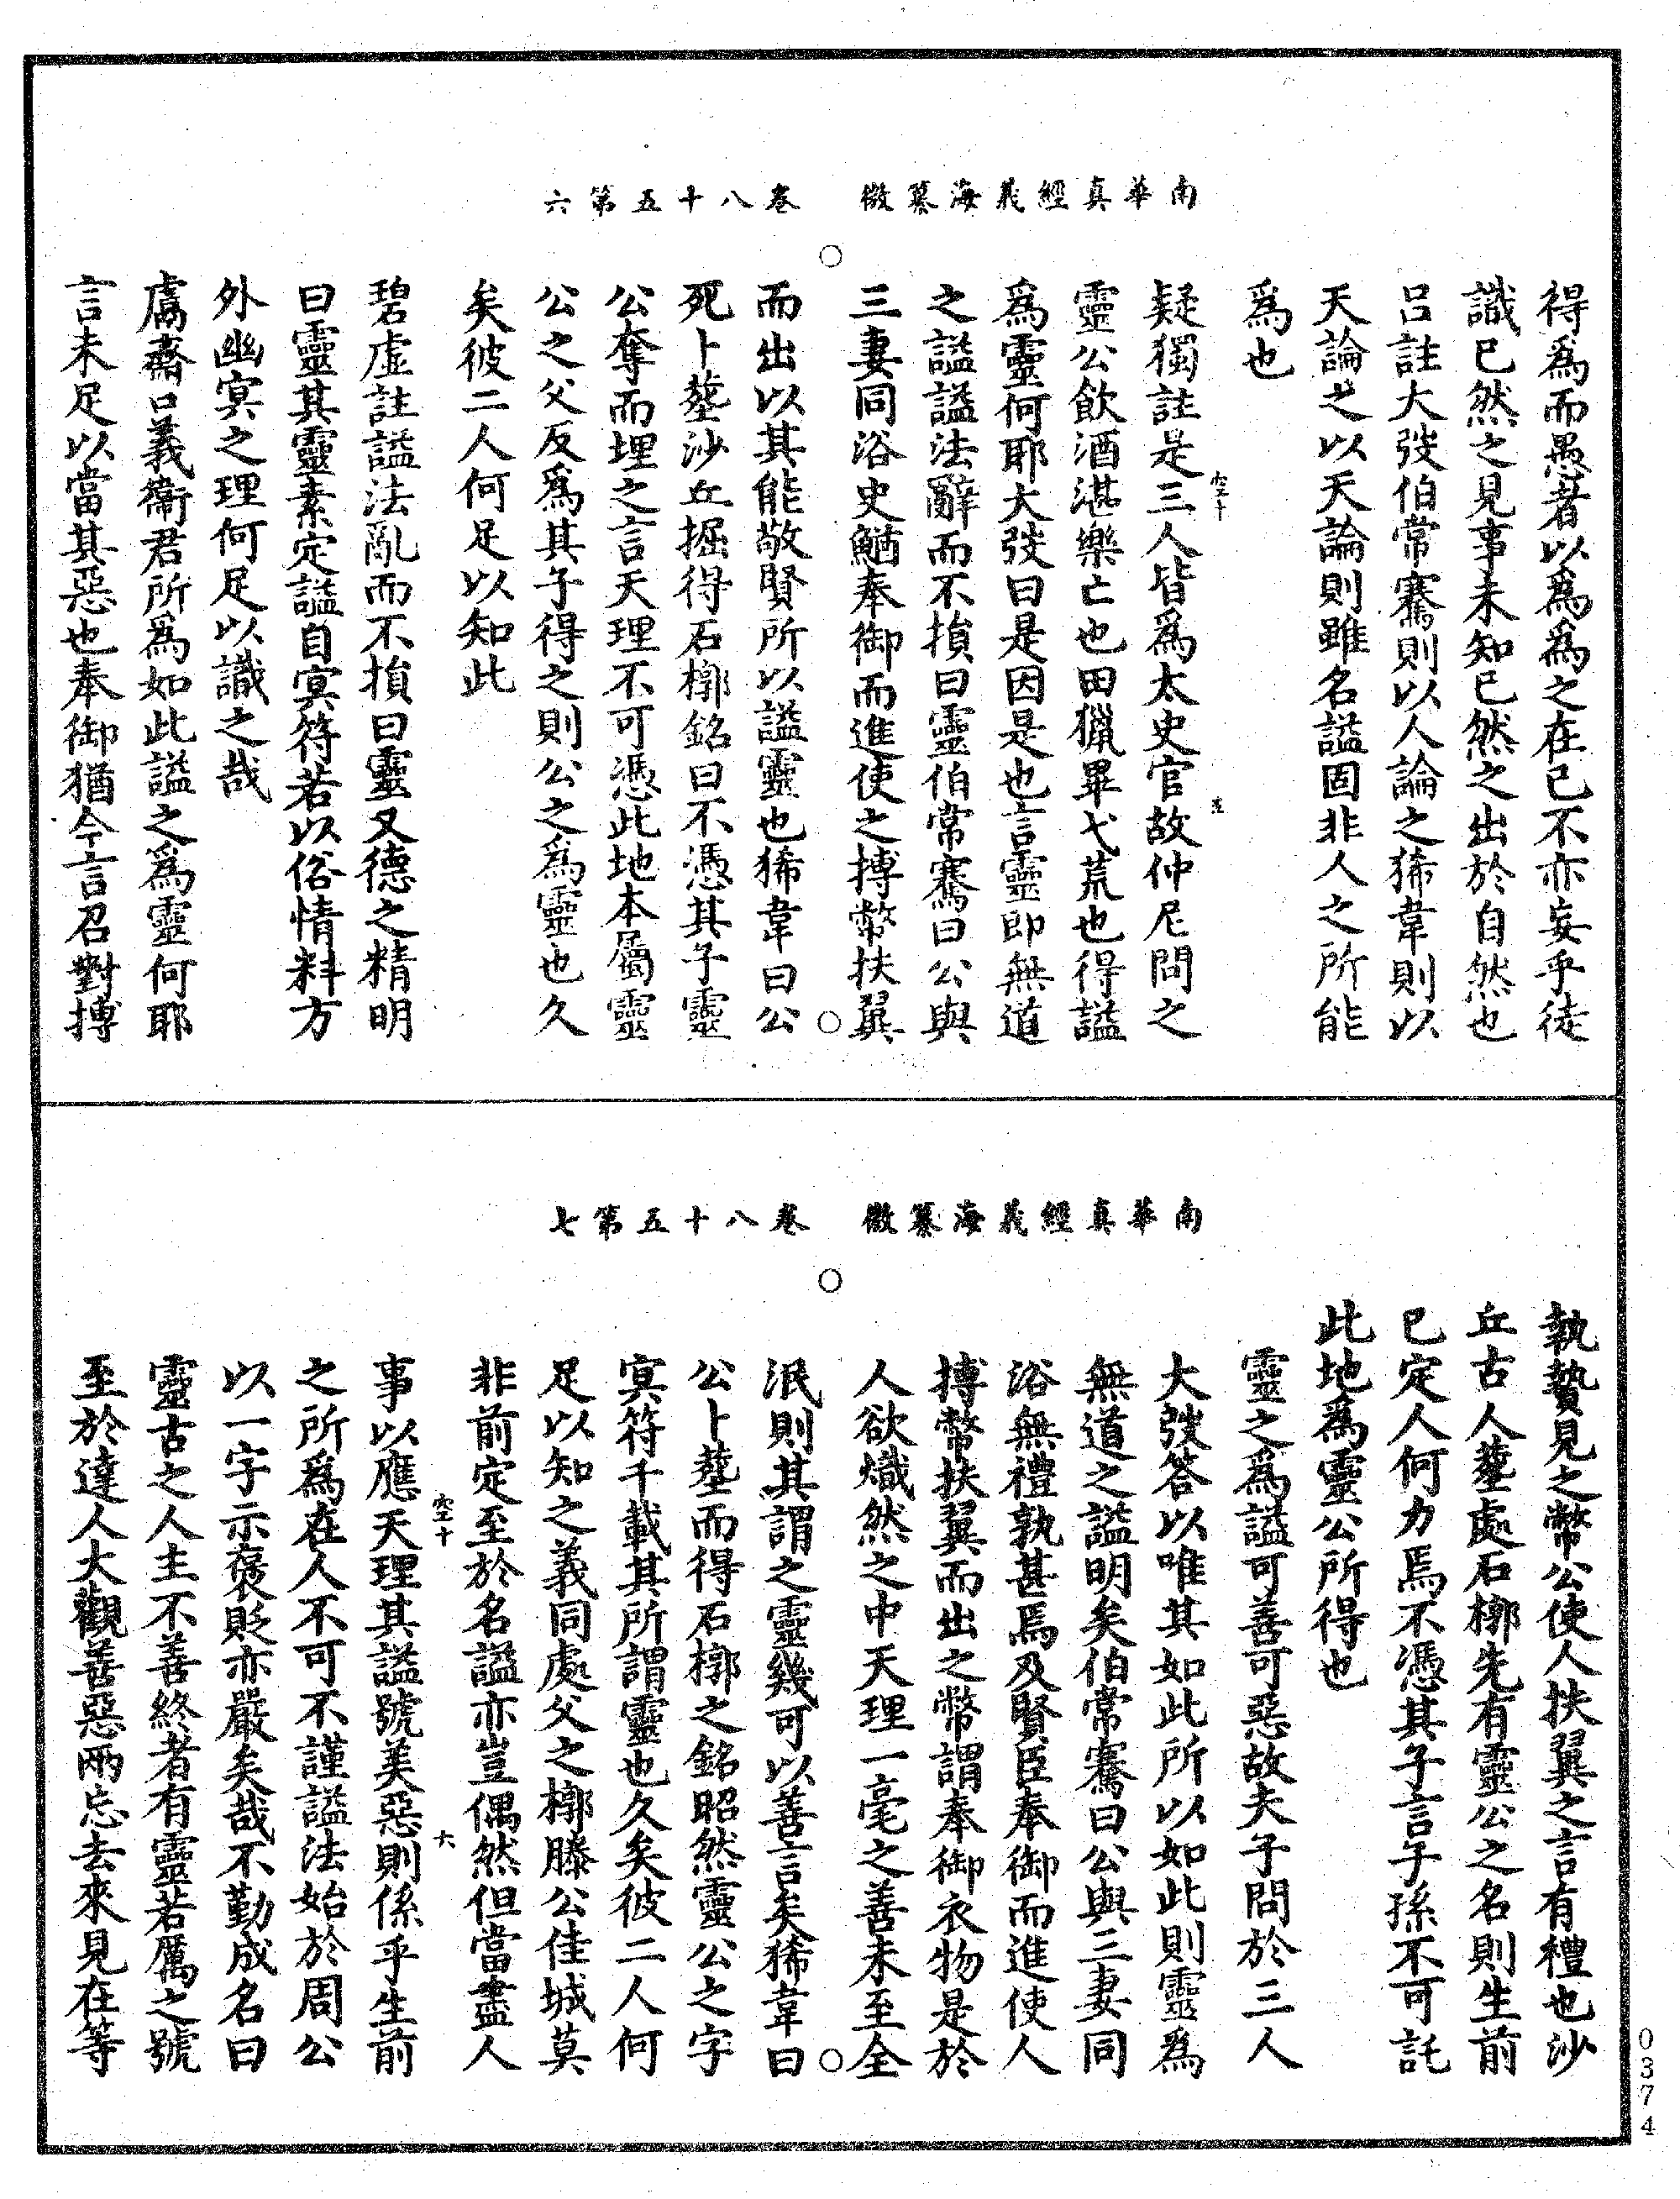 南華真經義海纂微　卷八十五第六
得爲而愚者以爲爲之在己不亦妄乎徒
識已然之見事未知已然之出於自然也
呂註大弢伯常騫則以人論之狶韋則以
天論之以天論則雖名謚固非人之所能
爲也
疑獨註是三人皆爲太史官故仲尼問之
靈公飲酒湛樂亡也田獵畢弋荒也得謚
爲靈何耶大弢曰是因是也言靈即無道
之謚謚法辭而不損曰靈伯常騫曰公與
三妻同浴史鰌奉御而進使之搏幣扶翼
而出以其能敬賢所以謚靈也狶韋曰公
死卜塟沙丘掘得石槨銘曰不憑其子靈
公奪而埋之言天理不可憑此地本屬靈
公之父反爲其子得之則公之爲靈也久
矣彼二人何足以知此
碧虛註謚法亂而不損曰靈又德之精明
曰靈其靈素定謚自冥符若以俗情料方
外幽冥之理何足以識之哉
鬳齋口義衞君所爲如此謚之爲靈何耶
言未足以當其惡也奉御猶今言召對搏
南華真經義海纂微　卷八十五第七
執贄見之幣公使人扶翼之言有禮也沙
丘古人塟處石槨先有靈公之名則生前
已定人何力焉不憑其子言子孫不可託
此地爲靈公所得也
靈之爲謚可善可惡故夫子問於三人
大弢答以唯其如此所以如此則靈爲
無道之謚明矣伯常騫曰公與三妻同
浴無禮孰甚焉及賢臣奉御而進使人
搏幣扶翼而出之幣謂奉御衣物是於
人欲熾然之中天理一毫之善未至全
泯則其謂之靈幾可以善言矣狶韋曰
公卜塟而得石槨之銘昭然靈公之字
冥符千載其所謂靈也久矣彼二人何
足以知之義同處父之槨滕公佳城莫
非前定至於名謚亦豈偶然但當盡人
事以應天理其謚號美惡則係乎生前
之所爲在人不可不謹謚法始於周公
以一字示褒貶亦嚴矣哉不勤成名曰
靈古之人主不善終者有靈若厲之號
至於達人大觀善惡兩忘去來見在等
0374